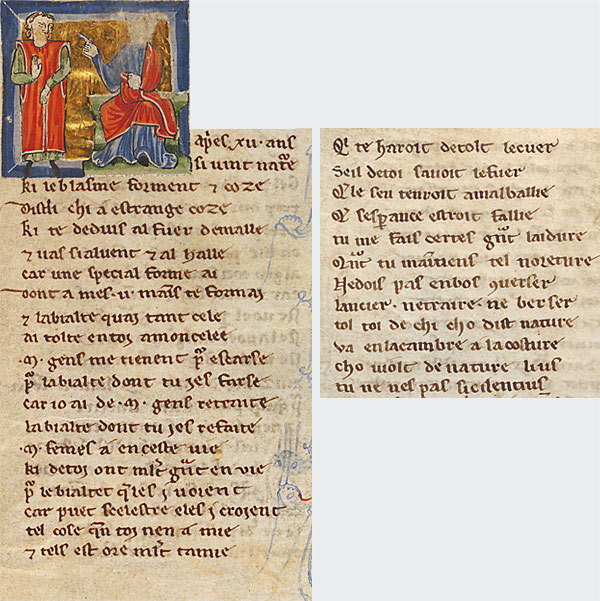 apres .xii. ans
si vint nature
ki le blasme forment ⁊ coze
dist li chi a estrange coze
ki te deduis al fuer de malle
⁊ vas si al vent ⁊ al halle
car une special forme ai
dont a mes .ii. mains te formai
⁊ la bialte quaj tant cele
ai tolte en toj amoncelee
.m. gens me tienent pr escarse
pr la bialte dont tu jes farse
car io ai de .m. gens retraite
la bialte dont tu jes refaite
.m. femes a en ceste vie
ki de toj ont mlt gnt en vie
pr le bialtet qles j voient
car puet scelestre eles j crojent
tel cose qen toj nen a mie
⁊ tels est ore mlt tamie
Qi te haroit de tolt le cuer
Seil de toi savoit le fuer
Ele sen tenroit a malballie
Q sesprance estroit fallie
tu me fais certes gnt laidure
Qnt tu maintiens tel noreture
Ne dois pas en bos 9uerser
lancier. ne traire. ne berser
tol toi de chi cho dist nature
va en la cambre a la costure
cho violt de nature li us
tu ne nes pas scilentius